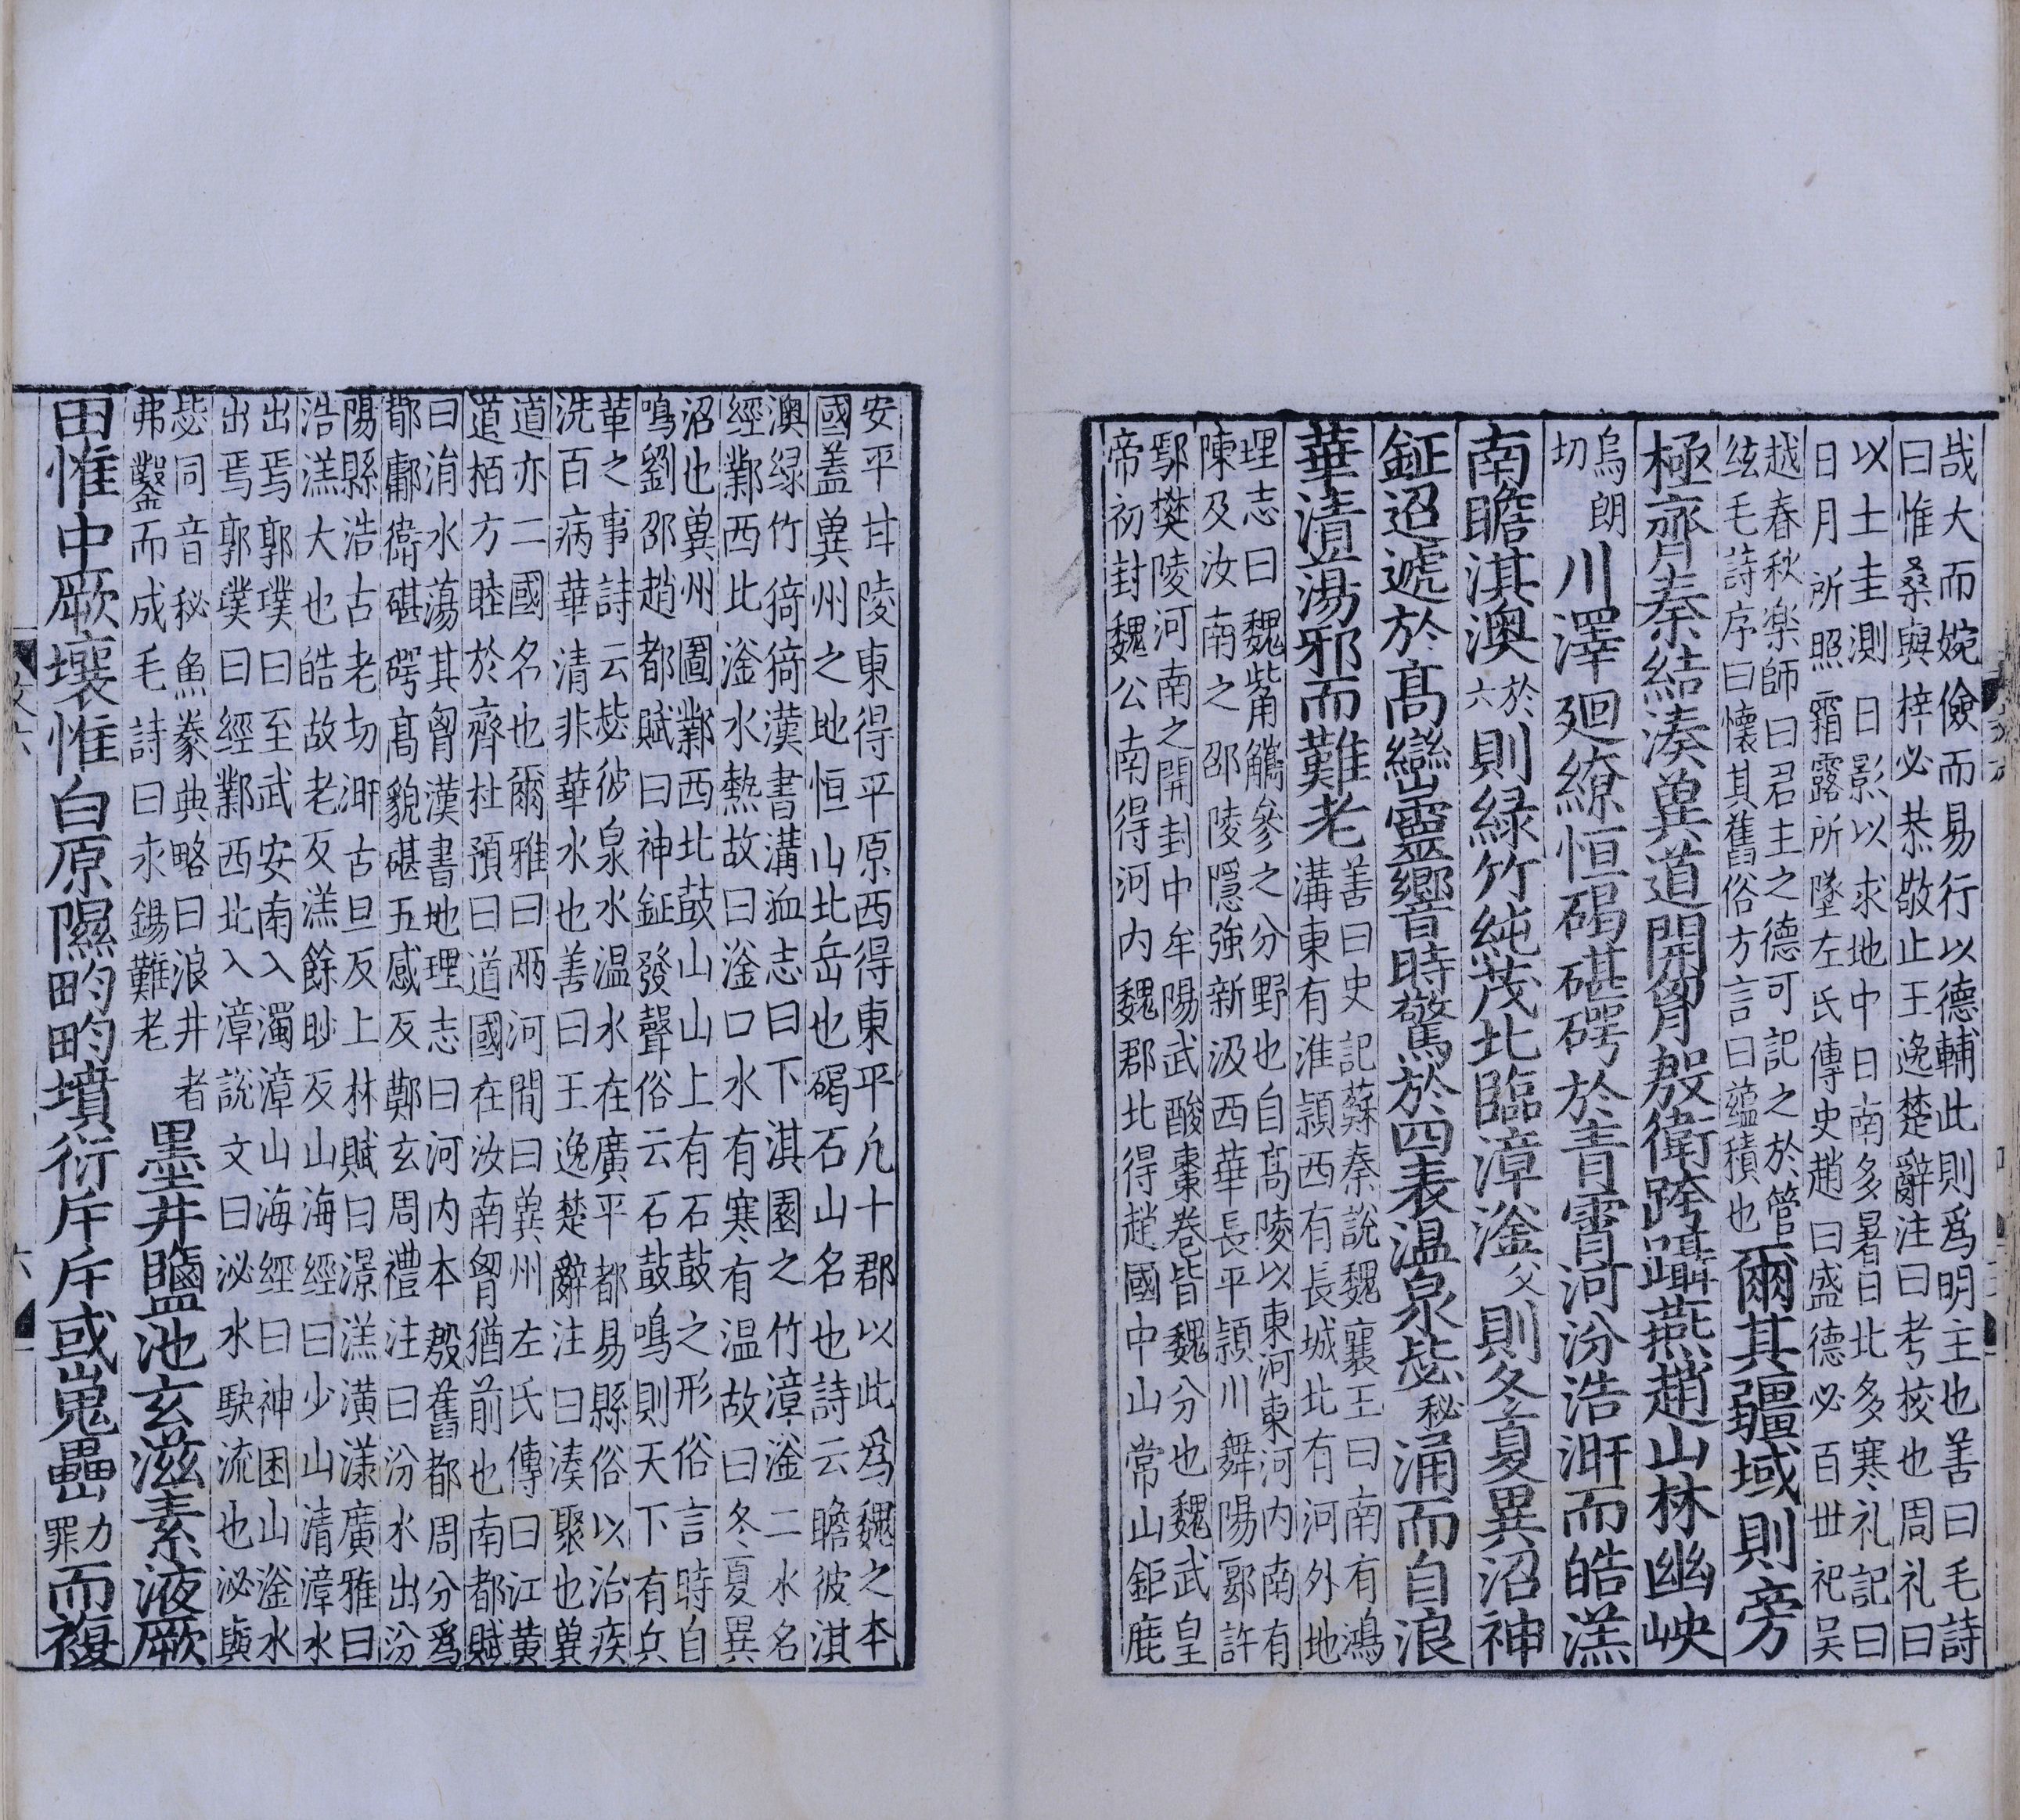 哉大而婉儉而易行以德輔此則爲明主也善曰毛詩
曰惟桑與梓必恭敬止王逸楚辭注曰考校也周礼曰
以土圭測日影以求地中日南多暑日北多寒礼記曰
日月所照霜露所墜左氏傳史趙曰盛德必百世祀吴
越春秋樂師曰君主之德可記之於管
絃毛詩序曰懷其舊俗方言曰蘊積也
爾其疆域則旁
極齊秦結湊兾道開胷殷衛跨躡燕趙山林幽岟
烏朗
切
川澤廻繚恒碣碪碍於青霄河汾浩汗而皓溔
南瞻淇澳
於
六
則緑竹純茂北臨漳滏
父
則冬夏異沼神
鉦迢遞於髙巒靈響時驚於四表温泉毖
秘
涌而自浪
華清蕩邪而難老
善曰史記蘇秦說魏襄王曰南有鴻
溝東有淮潁西有長城北有河外地
理志曰魏觜觿參之分野也自髙陵以東河東河内南有
陳及汝南之邵陵隱強新汲西華長平潁川舞陽郾許
鄢樊陵河南之開封中牟陽武酸棗卷皆魏分也魏武皇
帝初封魏公南得河内魏郡北得趙國中山常山鉅鹿
安平甘陵東得平原西得東平凢十郡以此爲魏之本
國蓋兾州之地恒山北岳也碣石山名也詩云瞻彼淇
澳緑竹猗猗漢書溝洫志曰下淇園之竹漳滏二水名
經鄴西北滏水熱故曰滏口水有寒有温故曰冬夏異
沼也兾州圖鄴西北鼓山山上有石鼓之形俗言時自
鳴劉邵趙都賦曰神鉦發聲俗云石鼓鳴則天下有兵
革之事詩云毖彼泉水温水在廣平都易縣俗以治疾
洗百病華清非華水也善曰王逸楚辭注曰湊聚也兾
道亦二國名也爾雅曰兩河間曰兾州左氏傳曰江黄
道栢方睦於齊杜預曰道國在汝南胷猶前也南都賦
曰淯水蕩其胷漢書地理志曰河内本殷舊都周分爲
鄁鄘衛碪碍髙貌碪五感反鄭玄周禮注曰汾水出汾
陽縣浩古老切汗古旦反上林賦曰灝溔潢漾廣雅曰
浩溔大也皓故老反溔餘眇反山海經曰少山清漳水
出焉郭璞曰至武安南入濁漳山海經曰神囷山滏水
出焉郭璞曰經鄴西北入漳說文曰泌水駃流也泌與
毖同音秘魚豢典略曰浪井者
弗鑿而成毛詩曰永錫難老
墨井鹽池玄滋素液厥
田惟中厥壤惟白原隰畇畇墳衍斥斥或嵬壘
力
罪
而複